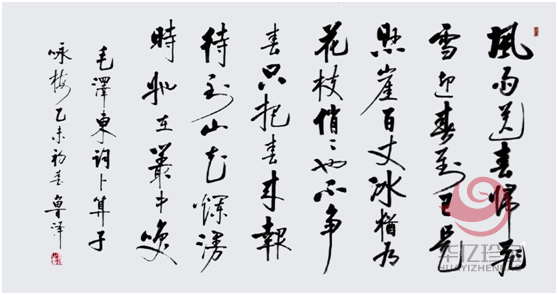 風雨送春歸飛
雪迎春到已是
悬崖百丈冰猶有
花枝俏〻也不争
春只把春来報
待到山花爛漫
時她在叢中笑
毛澤東詞卜算子
咏梅乙未初春魯洋
华亿珍